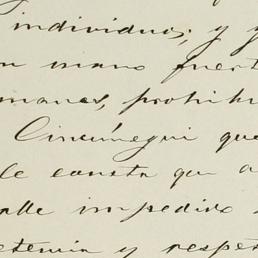 individuos; y
mano fuert
manas, prohibi
Cincúnegui que
le consta que a
alle impedido
etencia y respet